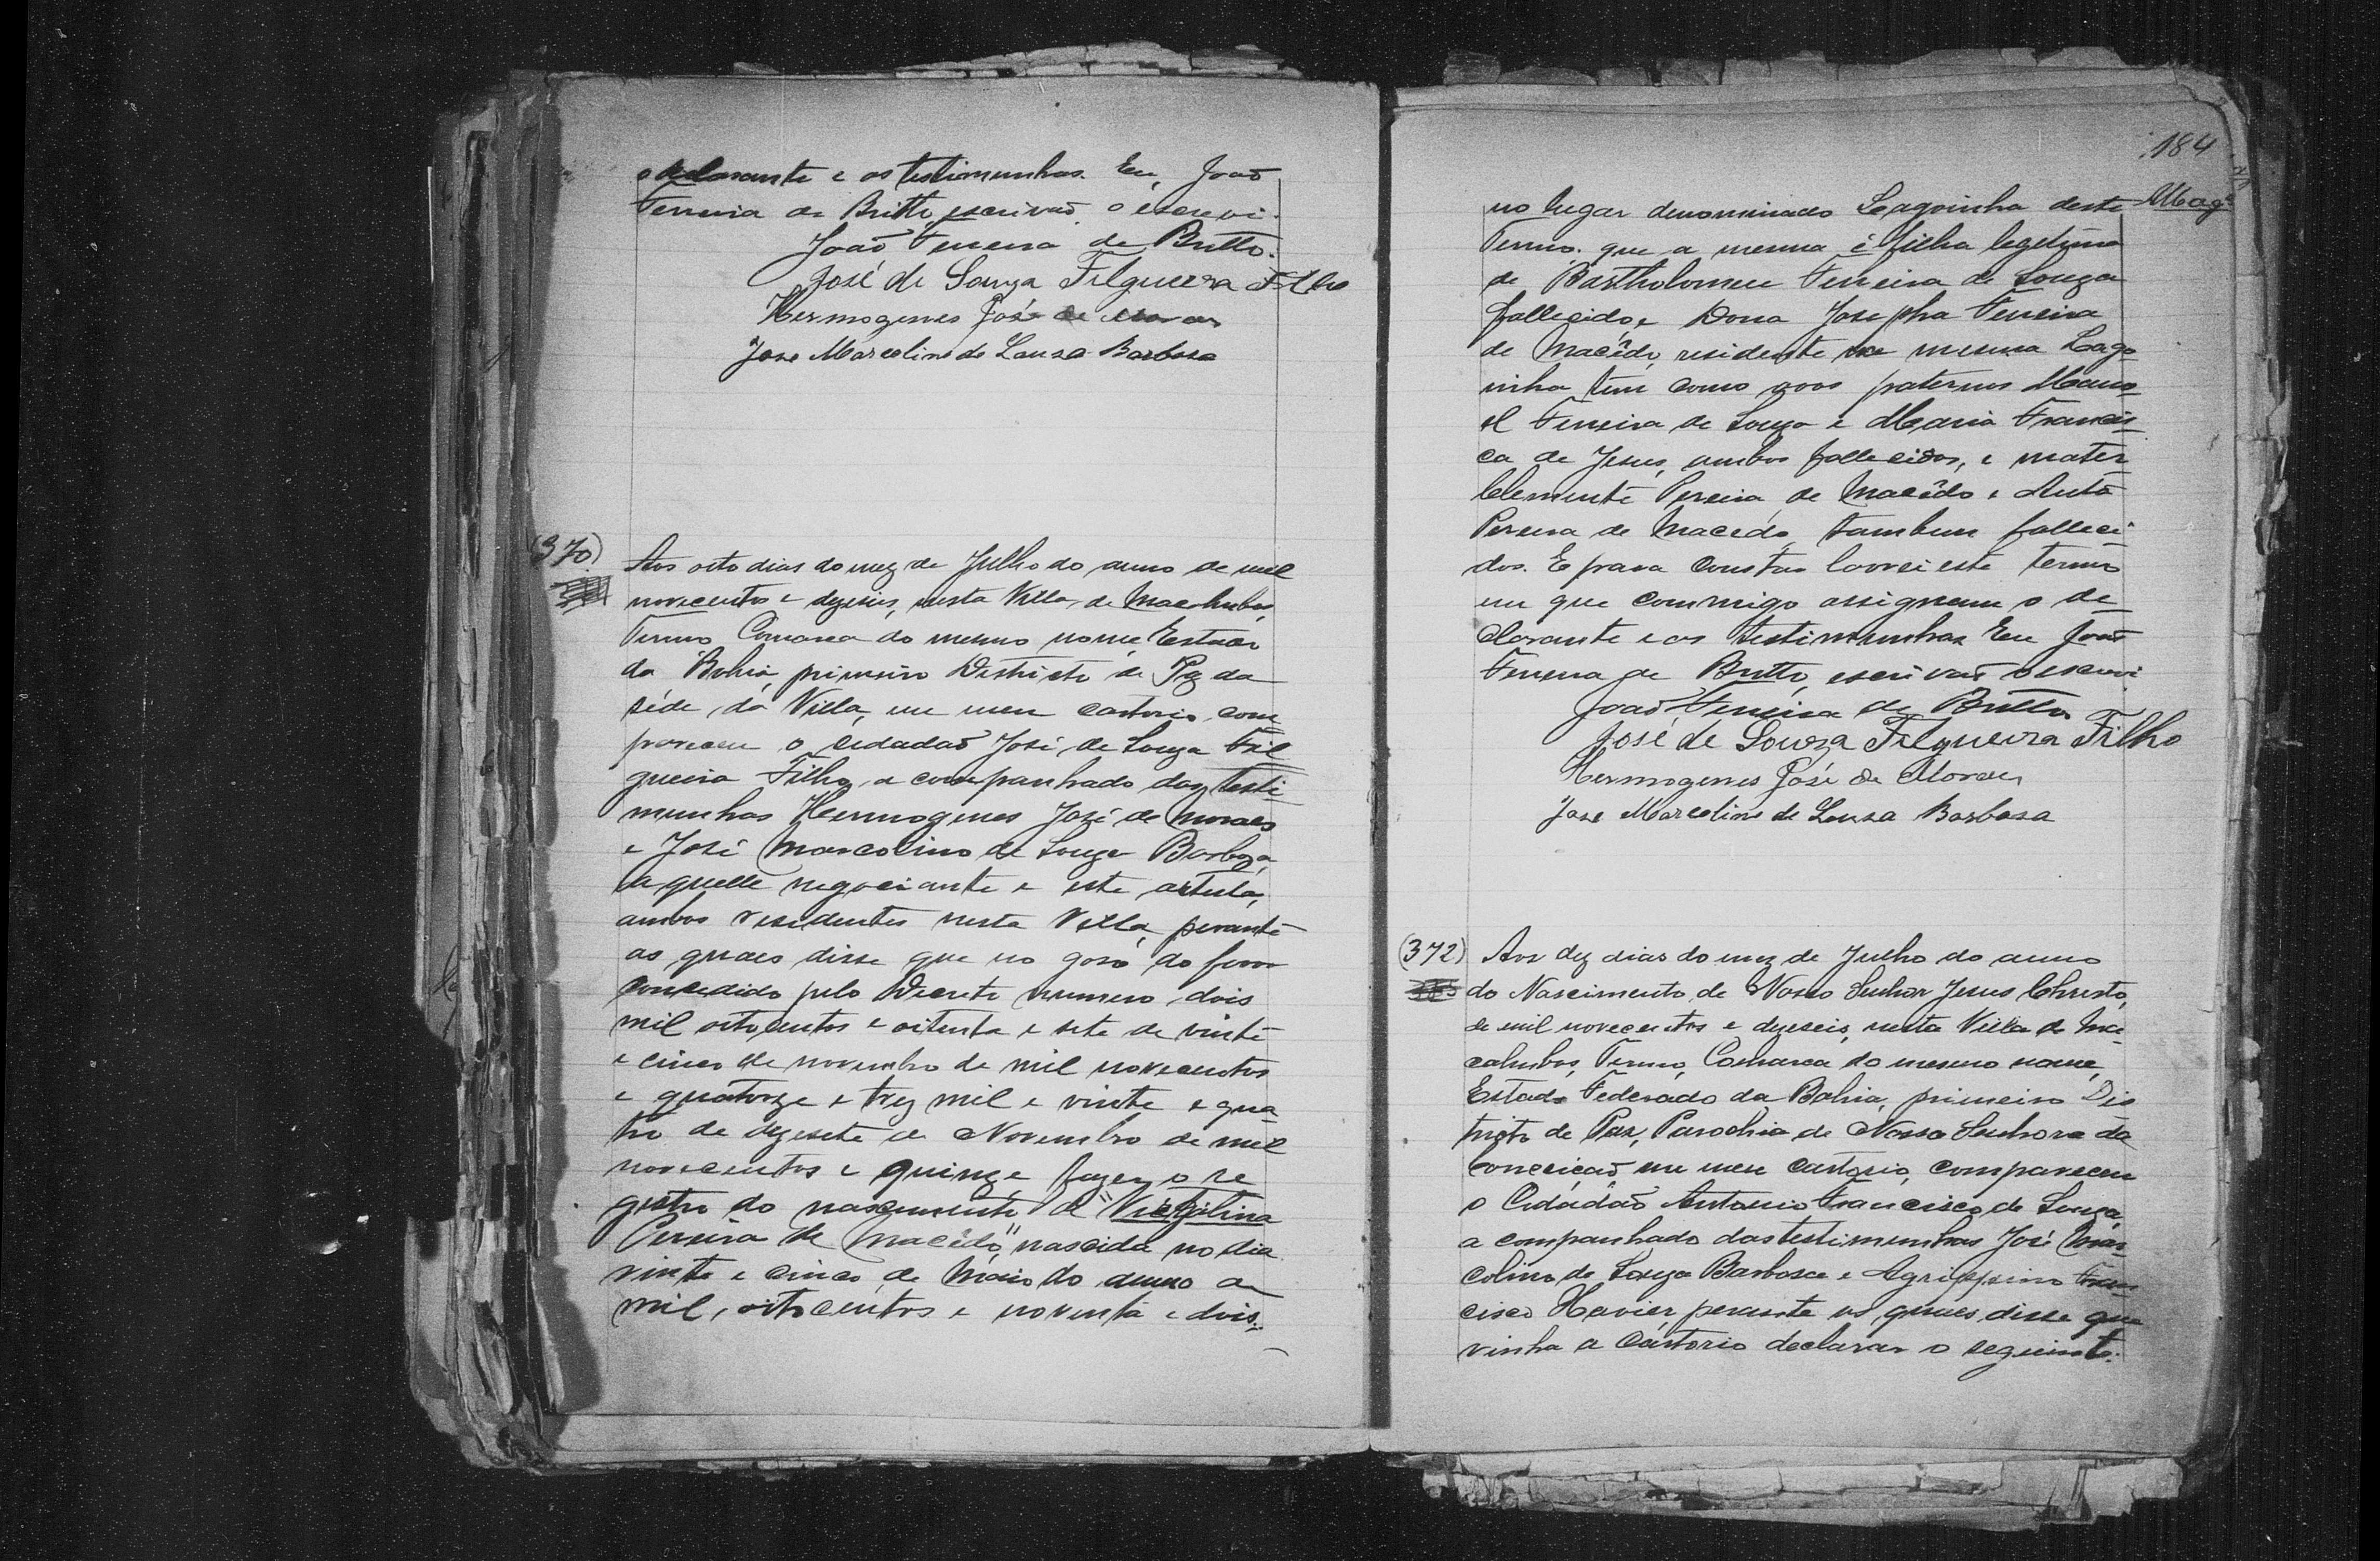 o declarante e as testimunhas. Eu, João
Ferreira de Britto, escrivão o escrevi.
João Ferreira de Britto.
José de Souza Filgueira Filho
Hermogenes José de Moraes
Jose Marcolino de Souza Barbosa
(370)
Aos oito dias do mez de Julho do anno de mil
novecentos e dezeseis, nesta Villa de Macahubas,
Termo, Comarca do mesmo nome, Estado
da Bahia, primeiro Districto de Pz da
séde da Villa, em meu cartorio com
pareceu o cidadão José de Souza Fil
gueira Filho, a companhado das testi-
munhas Hermogenes José de Moraes
e José Marcolino de Souza Barboza,
aquelle negociante e este artista,
ambos residentes nesta Villa, perante
as quaes disse que no goso do favor
concedido pelo Decreto numero dois
mil oitocentos e oitenta e sete de vinte
e cinco de novembro de mil novecentos
e quatorze e trez mil e vinte e qua
tro de dezesete de Novembro de mil
novecentos e quinze, fazer o re
gistro do nascimento de "Virgilina
Pereira de Macêdo," nascida no dia
vinte e cinco de Maio do anno de
mil, oitocentos e noventa e dois.
184
no lugar denominado Lagoinha deste
Termo. que a mesma é filha legitima
de Bartholomeu Ferreira de Souza
fallecido, e Dona Josepha Ferreira
de Macêdo, residente na mesma Lago
inha, tem como avos paternos Mano
el Ferreira de Souza e Maria Francis-
ca de Jesus, ambos fallecidos, e mater
Clemente Pereira de Macêdo e
Pereira de Macedo, tambem falleci
dos. E para constar lavrei este termo
em que commigo assignam o de
clarante e as testimunhas Eu João
Ferreira de Britto, escrivão o escrevi
João Ferreira de Britto
José de Souza Filgueira Filho
Hermogenes José de Moraes
Jose Marcolino de Souza Barbosa
(372)
Aos dez dias do mez de Julho do anno
do Nascimento de Nosso Senhor Jesus Christo,
de mil novecentos e dezeseis, nesta Villa de Ma
cahubas, Termo, Comarca do mesmo nome,
Estado Federado da Bahia, primeiro Dis
tricto de Paz, Parochia de Nossa Senhora da
Conceição, em meu cartorio, compareceu
o Cidadão Antonio Francisco de Souza,
a companhado das testimunhas José Mar
colino de Souza Barbosa e Agrippino Fran
cisco Xavier, perante as quaes disse que
vinha a cartorio declarar o seguinte: